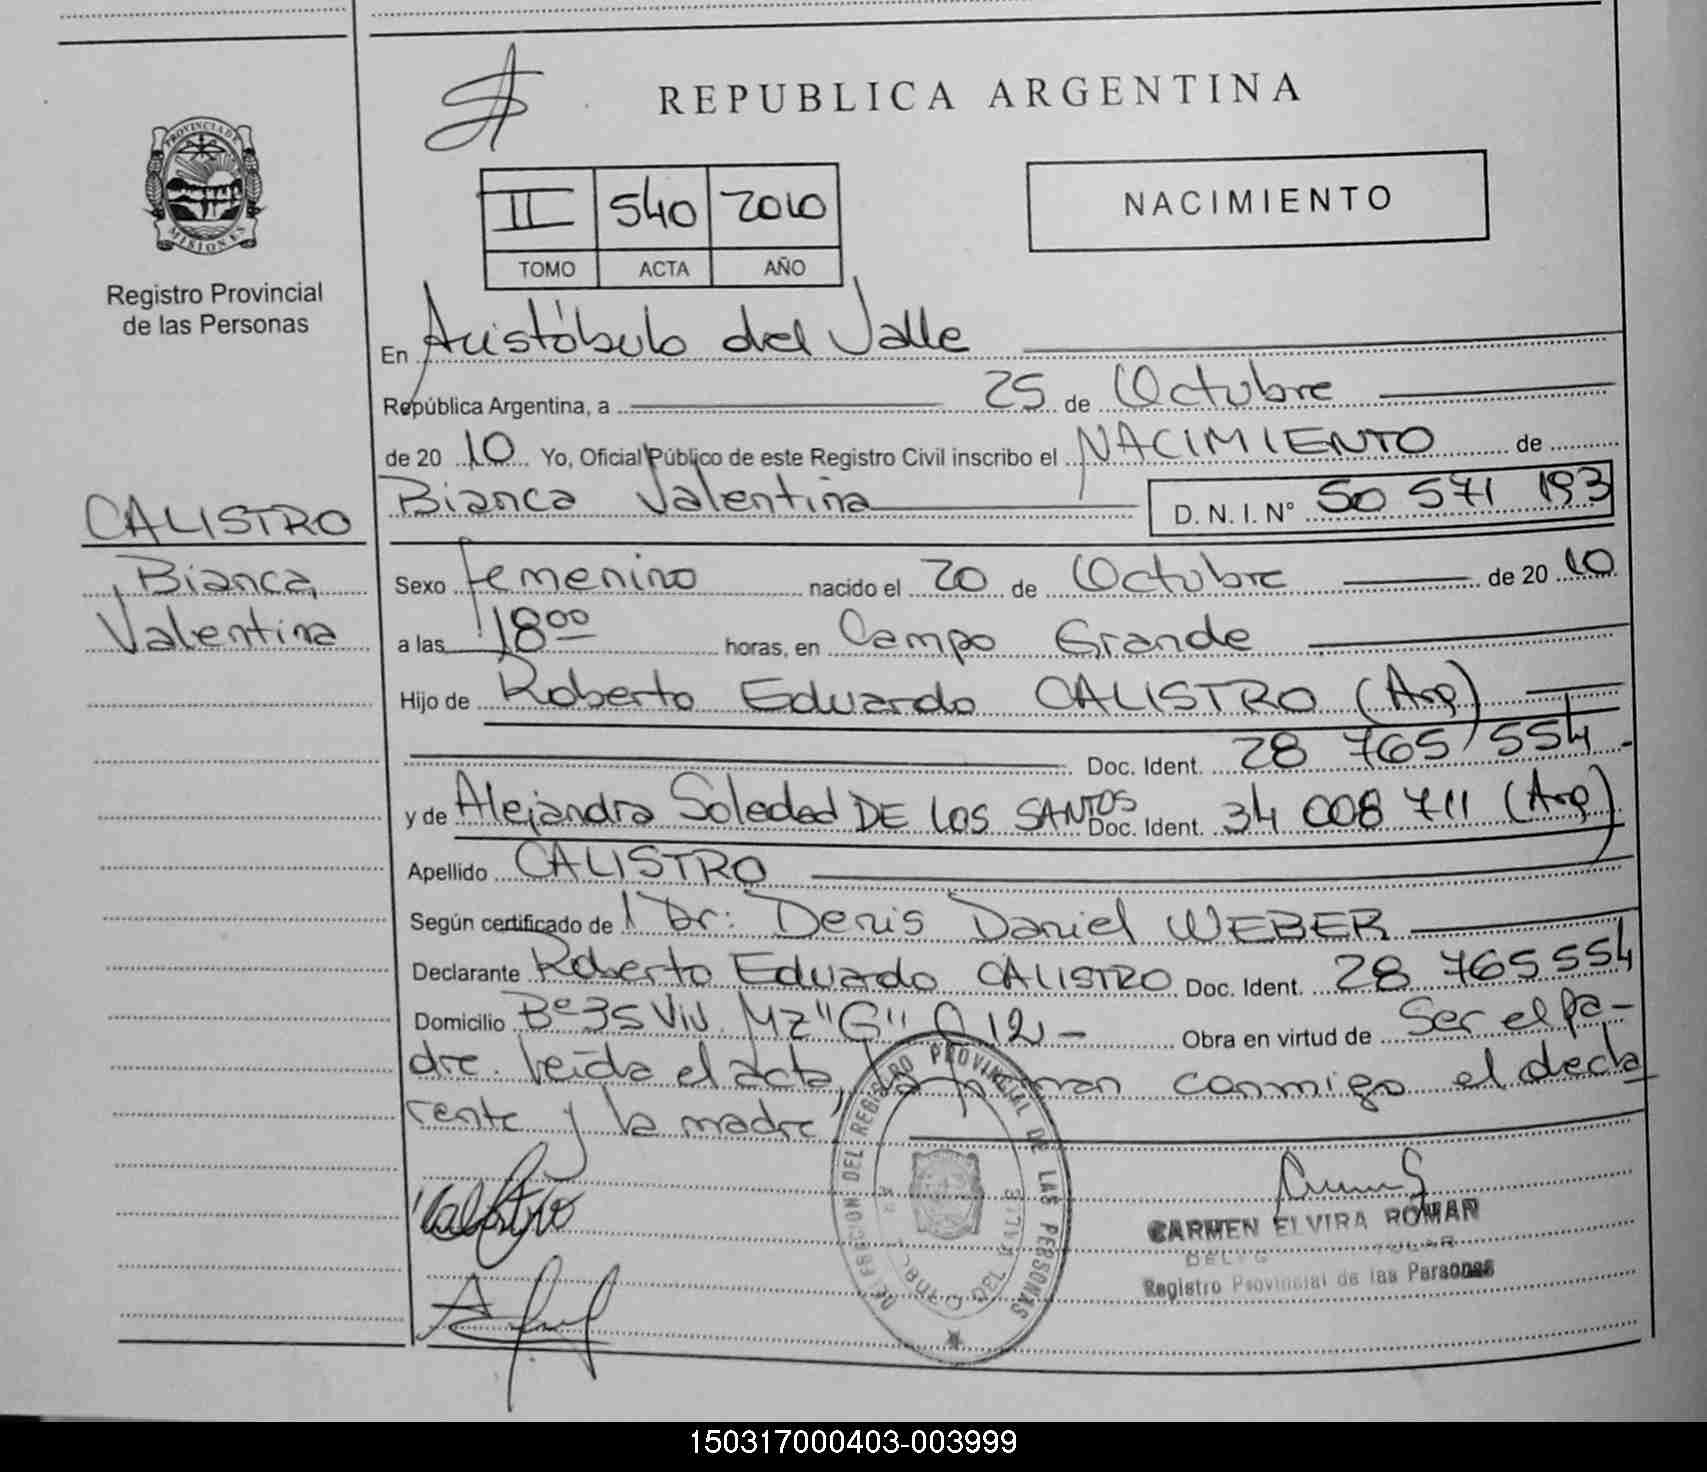 REPUBLICA ARGENTINA
PROVINCIA DE
MISIONES
Registro Provincial
de las Personas
II 540 2010
TOMO ACTA AÑO
NACIMIENTO
En Aristóbulo del Valle
República Argentina, a 25 de Octubre
de 20 10 Yo, Oficial Público de este Registro Civil inscribo el NACIMIENTO de
Bianca Valentina D. N. I. N° 50 571 193
CALISTRO
Bianca
Valentina
Sexo femenino nacido el 20 de Octubre de 20 10
a las 18 00 horas, en Campo Grande
Hijo de Roberto Eduardo CALISTRO (Arg)
Doc. Ident. 28 765 554
y de Alejandra Soledad DE LOS SANTOS Doc. Ident. 34 008 711 (Arg)
Apellido CALISTRO
Según certificado de Dr: Denis Daniel WEBER
Declarante Roberto Eduardo CALISTRO Doc. Ident. 28 765 554
Domicilio Bº 35 Viv. Mz "G" C 12 - Obra en virtud de Ser el pa-
dre. Leída el acta, la firman conmigo el decla
rante y la madre
DELEGACION DEL REGISTRO PROVINCIAL DE LAS PERSONAS
DEL VALLE
Calistro
CARMEN ELVIRA ROMAN
Registro Provincial de las Personas
150317000403-003999